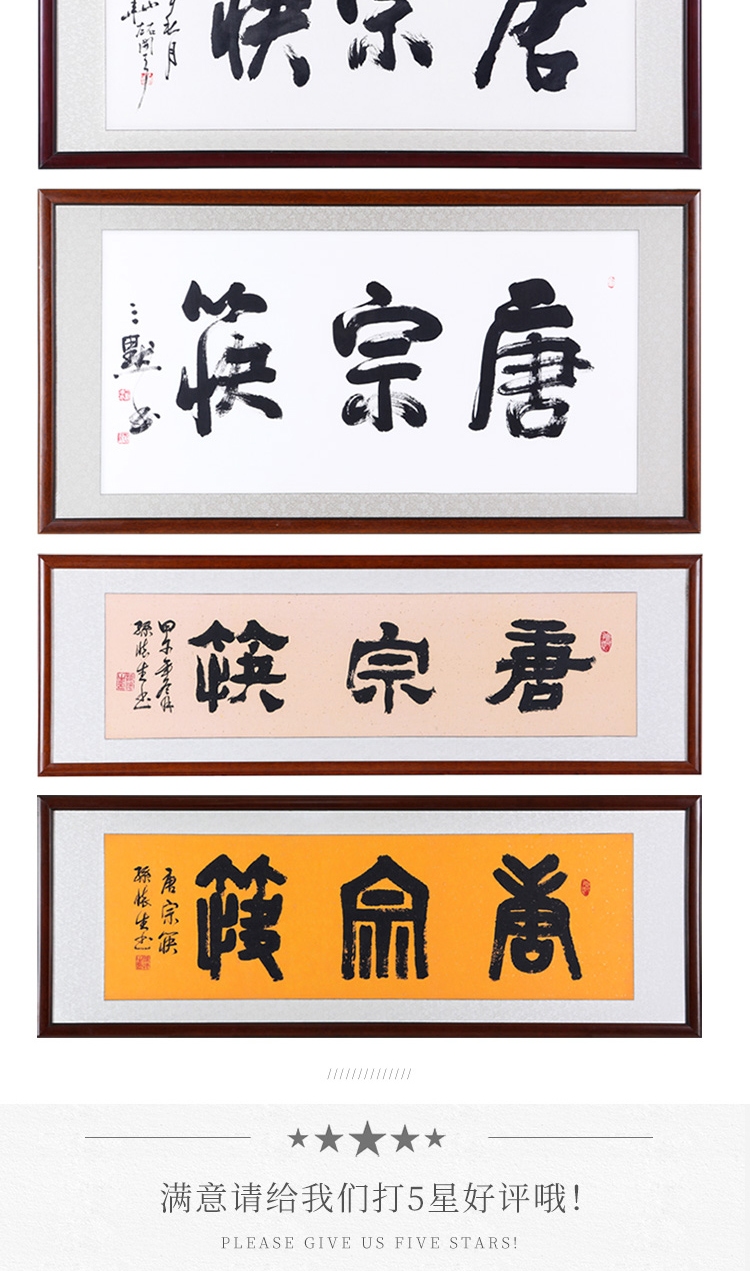 唐宗筷
唐宗筷
三默书
唐宗筷
甲午年冬月
孫懷生书
唐宗筷
唐宗筷
孫懷生书
满意请给我们打5星好评哦!
PLEASE GIVE US FIVE STARS!